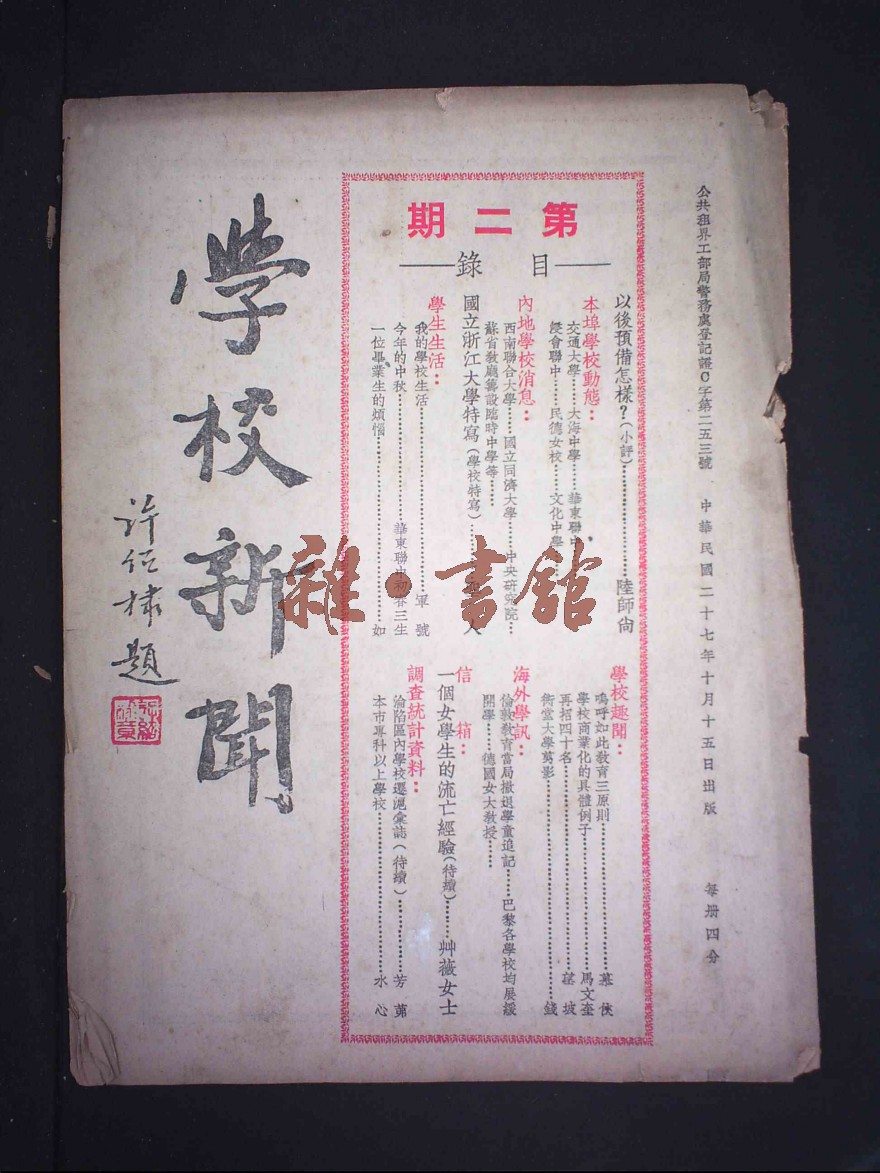 公共租界工部局警務處登記證C字第二五三號 中華民國二十七年十月十五日出版 每册四分
第二期
目錄
以後預備怎樣?(小評)……陸師尙
本埠學校動態:
交通大學……大海中學……華東聯中
浸會聯中……民德女校……文化中學
內地學校消息:
西南聯合大學……國立同濟大學……中央研究院……
蘇省敎廳籌設臨時中學等……
國立浙江大學特寫(學校特寫)……人
學生生活:
我的學校生活……軍號
今年的中秋……華東聯中初春三生
一位畢業生的煩惱……如
學校趣聞:
嗚呼如此敎育三原則……慕俠
學校商業化的具體例子……馬文奎
再招四十名……坡
衖堂大學剪影……錢
海外學訊:
倫敦敎育當局撤退學童追記……巴黎各學校均展緩
開學……德國女大敎授……
信箱:
一個女學生的流亡經驗(待續)……艸薇女士
調查統計資料:
淪陷區內學校遷滬彙誌(待續)……芳
本市專科以上學校……水心
學校新聞
許紹棣題
雜·書舘